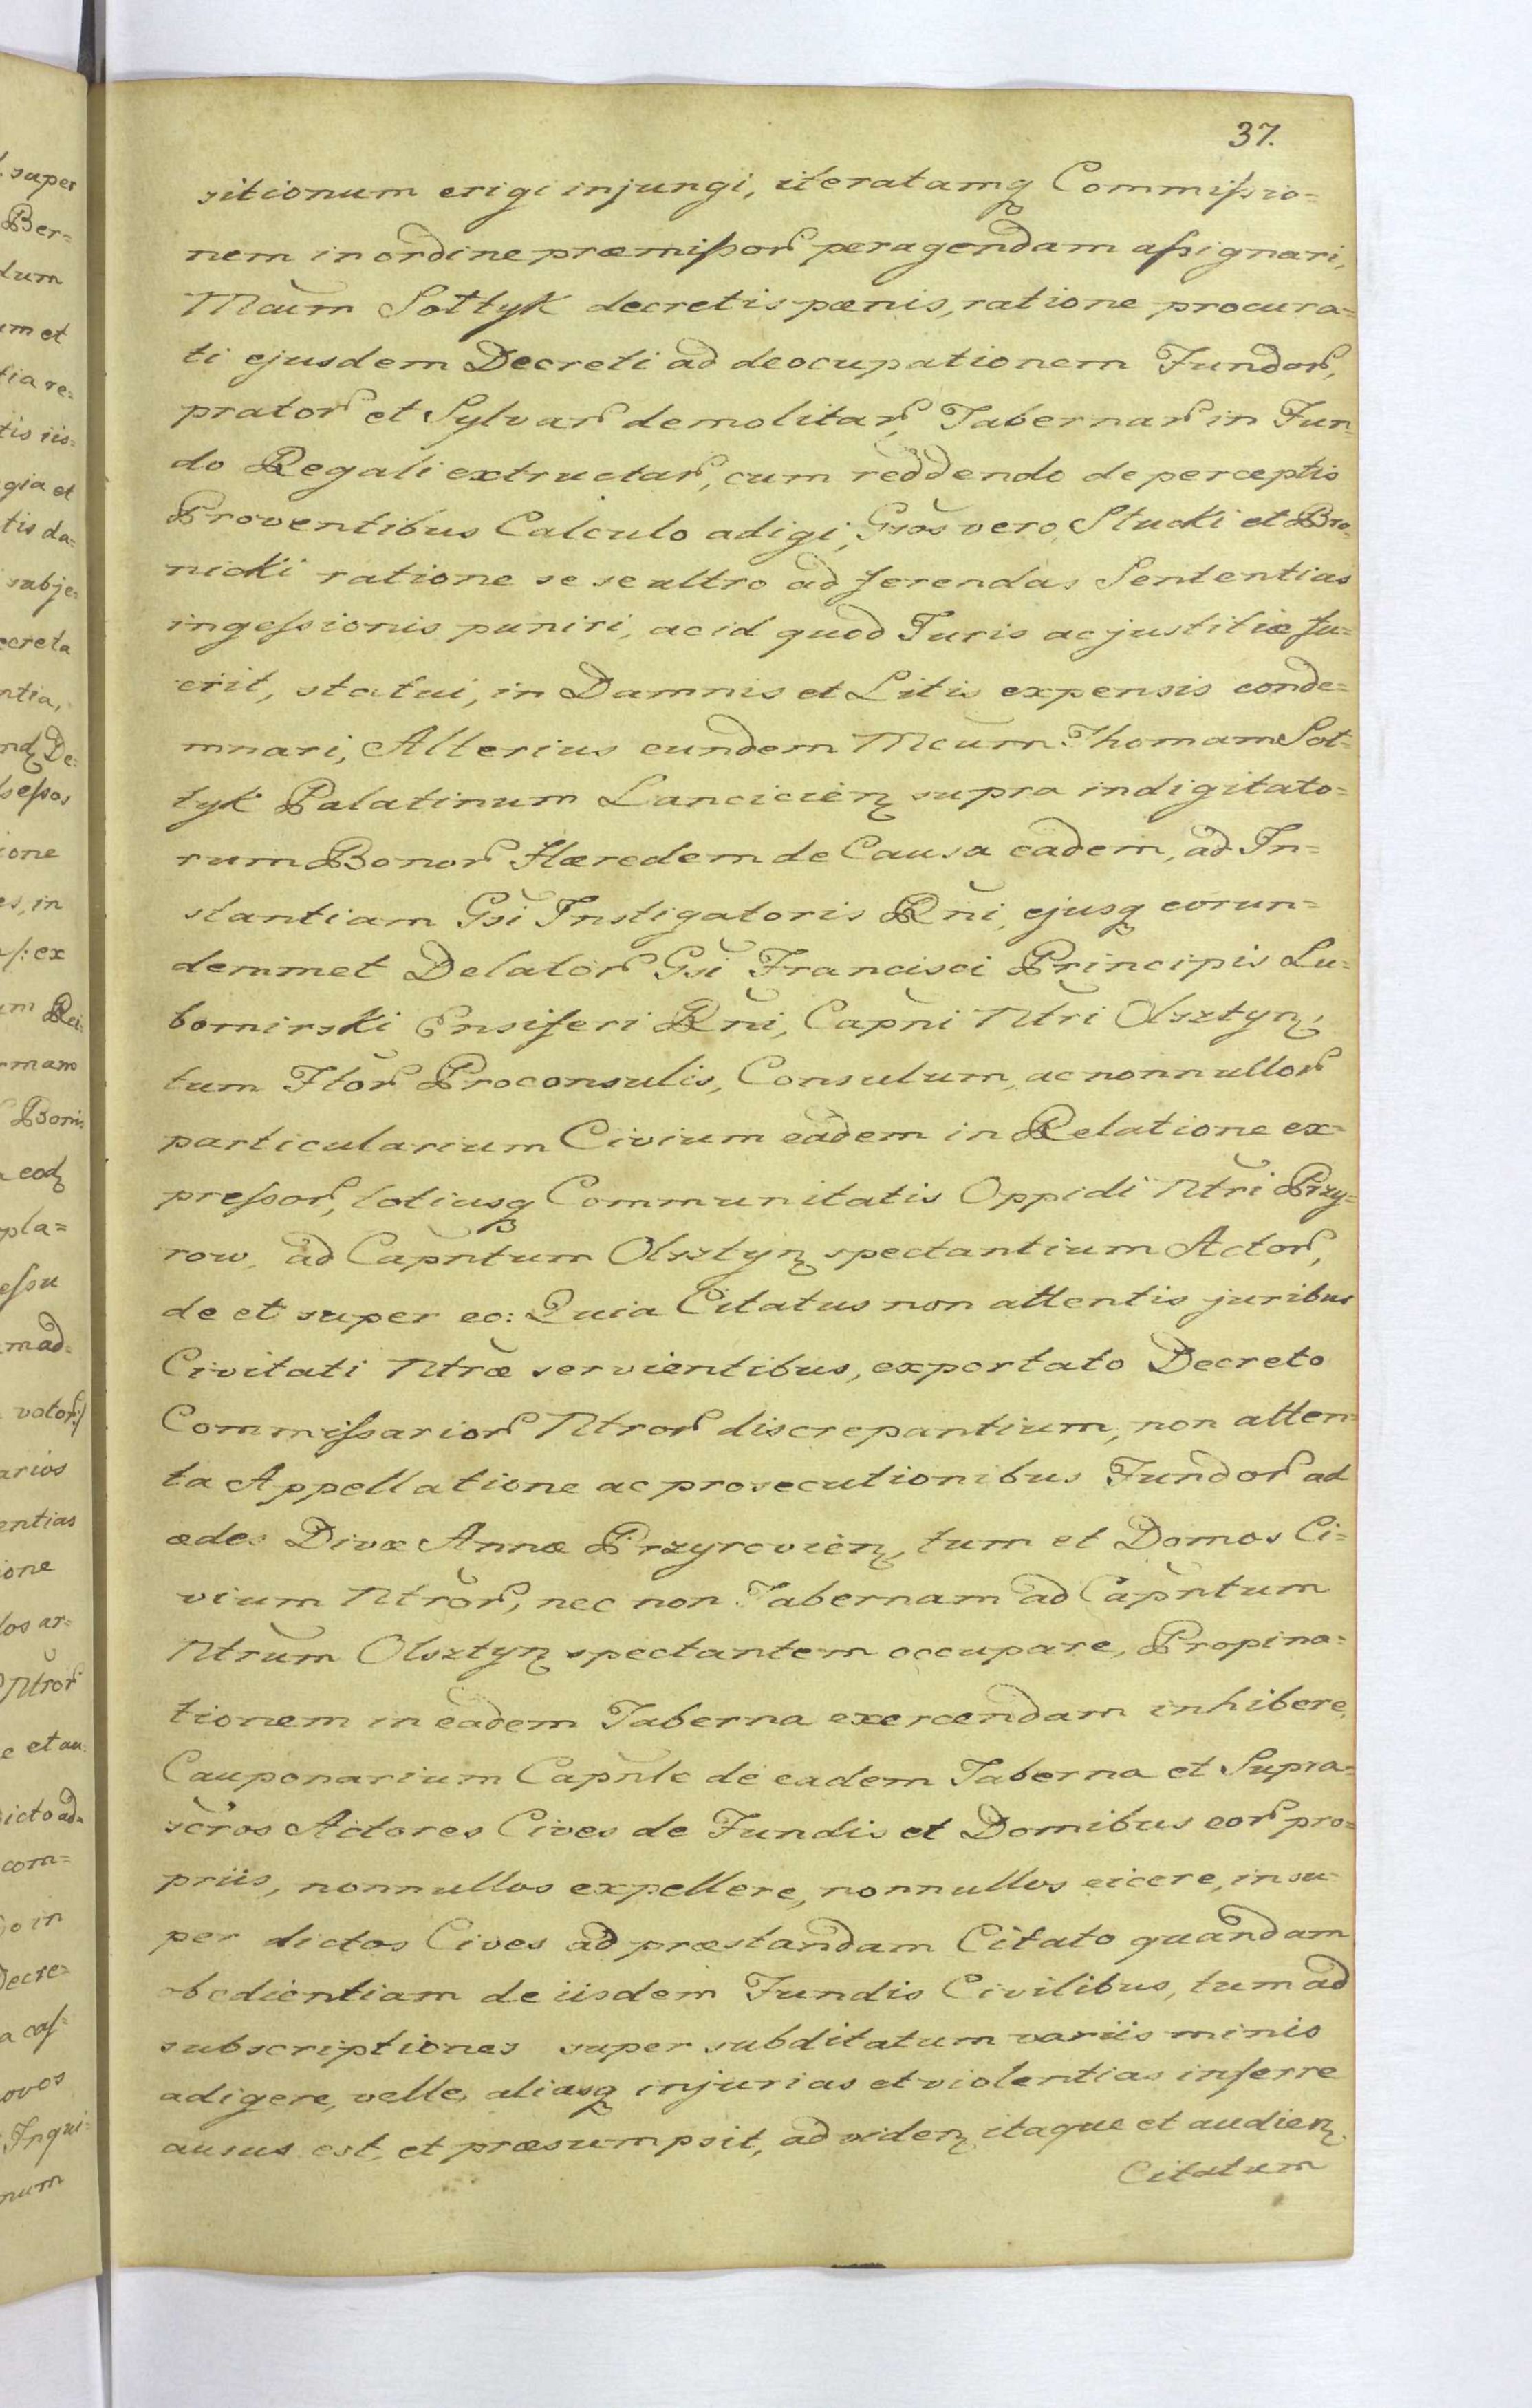 37.
sitionum erigi injungi, iteratamq Commißio=
nem in ordine præmißor peragendam aßignari,
Mcum Sołtyk decretis pænis, ratione procura=
ti ejusdem Decreti ad deocupationem Fundor,
prator et Sylvar demolitar, Tabernar in Fun=
do Regali extructar, cum reddendo de perceptis
Proventibus Calculo adigi, Gsos vero, Stucki et Bro=
nicki ratione se se ultro ad ferendas Sententias
ingeßionis puniri, ac id quod Juris ac justitiæ fu=
erit, statui, in Damnis et Litis expensis conde=
mnari, Alterius eundem Mcum Thomam Soł=
tyk Palatinum Lancicien supra indigitato=
rum Bonor Hæredem de Causa eadem, ad In=
stantiam Gsi Instigatoris Rni, ejusq eorun=
demmet Delator Gsi Francisci Principis Lu=
bomirski Ensiferi Rni, Capni Ntri Olsztyn,
tum Hor Proconsulis, Consulum, ac nonnullor
particularium Civium eadem in Relatione ex=
preßor, totiusq Communitatis Oppidi Ntri Przy=
row, ad Capntum Olsztyn spectantium Actor,
de et super eo: Quia Citatus non attentis juribus
Civitati Ntræ servientibus, exportato Decreto
Commißarior Ntror discrepantium, non atten=
ta Appellatione ac prosecutionibus Fundor ad
ædes Divæ Annæ Przyrovien, tum et Domos Ci=
vium Ntror, nec non Tabernam ad Capntum
Ntrum Olsztyn spectantem occupare, Propina=
tionem in eadem Taberna exercendam inhibere,
Cauponarium Capnle de eadem Taberna et Supra=
scros Actores Cives de Fundis et Domibus eor pro=
priis, nonnullos expellere, nonnullos eicere, insu=
per dictos Cives ad præstandam Citato quandam
obedientiam de iisdem Fundis Civilibus, tum ad
subscriptiones super subditatum variis minis
adigere, velle, aliasq injurias et violentias inferre
ausus est, et præsumpsit, ad viden itaque et audien
Citatum